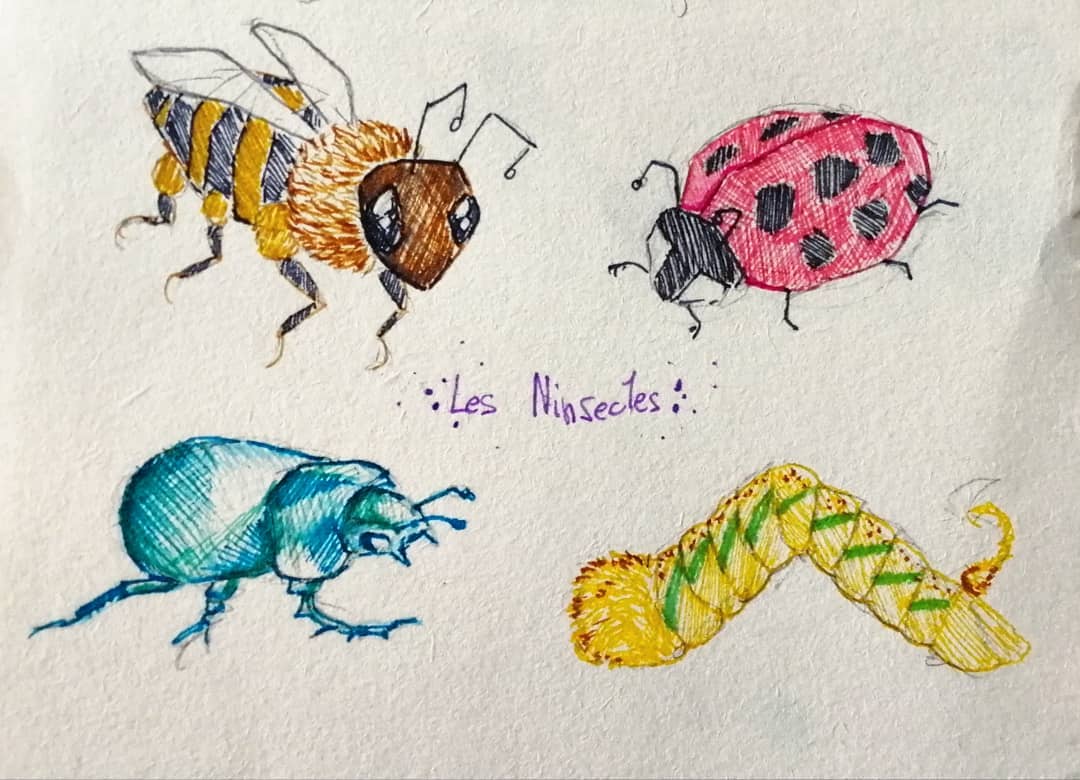 Les Ninsectes